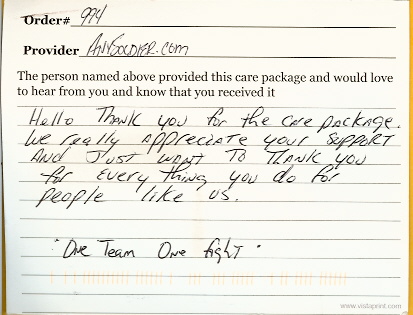 Order# 994
Provider AnySoldier.com
The person named above provided this care package and would love
to hear from you and know that you received it
Hello Thank you for the care package.
We really appreciate your support
And Just want to Thank you
for every thing you do for
people like us.
"One Team One fight"
www.vistaprint.com